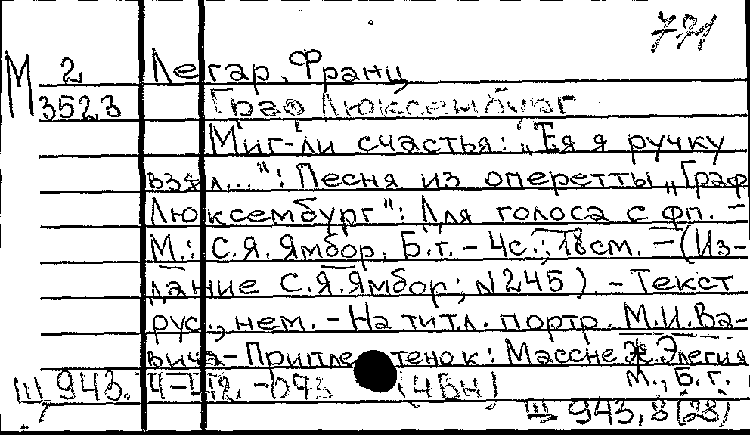 791
М 2 Легар, Франц
3523 Граф Люксембург
Миг-ли счастья: „Тея я ручку
взял...": Песня из оперетты „Граф
Люксембург": Для голоса с фп. -
М.: С.Я. Ямбор, Б.г. - 4с.; 18см. - (Из-
дание С.Я. Ямбор; N245). - Текст
рус., нем. - На титл. портр. М.И. Ва-
вича - Припле тенок: Массне Ж. Элегия
М., Б.г.
Ш 943. (4Бн)
Ш 943, 8 (28)